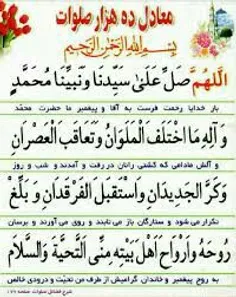 معادل ده هزار صلوات
بسم الله الرحمن الرحیم
اللّهُمَّ صَلِّ عَلَیٰ سَیِّدِنَا وَنَبِیِّنَا مُحَمَّدٍ
بار خدایا رحمت فرست به آقا و پیغمبر ما حضرت محمد
وَ آلِهِ مَا اخْتَلَفَ الْمَلَوَانِ وَتَعَاقَبَ الْعَصْرَانِ
و آلش مادامی که کشتی رانان در رفت و آمدند و شب و روز
وَكَرَّ الْجَدِیدَانِ وَاسْتَقْبَلَ الْفَرْقَدَانِ وَ بَلِّغْ
تکرار می شود و ستارگان باز می تابند و روی می آورند و برسان
رُوحَهُ وَاَرْوَاحَ اَهْلِ بَیْتِهِ مِنِّی التَّحِیَّةَ وَالسَّلَامَ
به روح پیغمبر و خاندان گرامیش از طرف من تحیت و درودی خالص
شرح فضائل صلوات صفحه